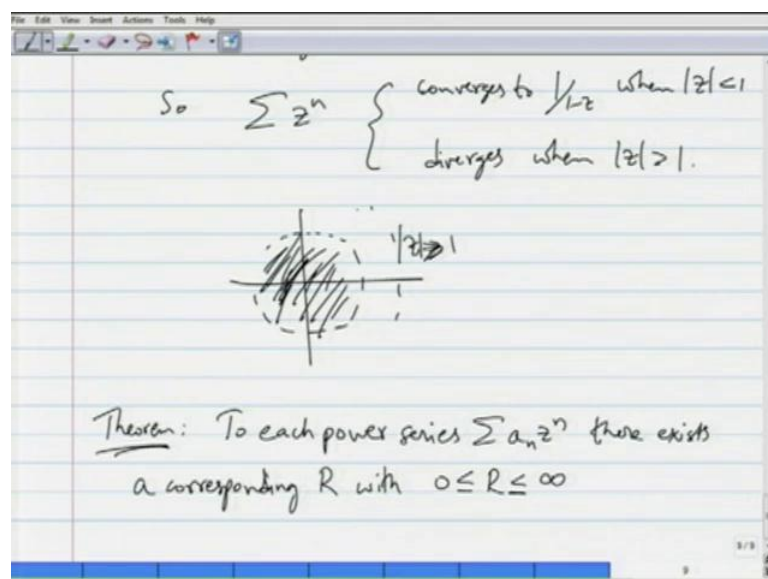 File Edit View Insert Actions Tools Help
So ∑ zⁿ { converges to 1/1-z when |z|<1
diverges when |z|>1.
Theorem: To each power series ∑ aₙzⁿ there exists
a corresponding R with 0≤R≤∞
3/3
9